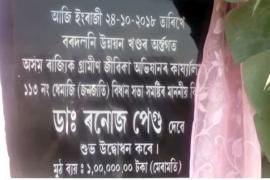 আজি ইংৰাজী ২৪-১০-২০১৮ তাৰিখে
বৰদলনি উন্নয়ন খণ্ডৰ অন্তৰ্গত
অসম ৰাজ্যিক গ্ৰামীণ জীৱিকা অভিযানৰ কাৰ্য্যালয়
১১৩ নং ধেমাজি (জনজাতি) বিধান সভা সমষ্টিৰ মাননীয় বি
ডাঃ ৰনোজ পেগু দেৱে
শুভ উদ্বোধন কৰে।
মুঠ ব্যয় : ১,০০,০০০.০০ টকা (মেৰামতি)